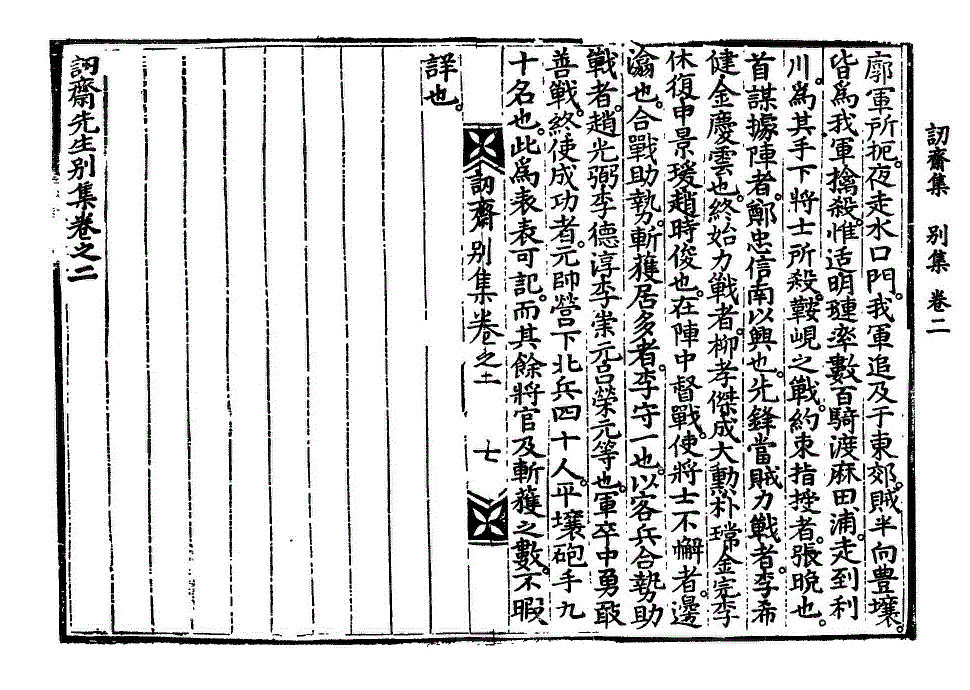 訒齋集　別集　卷二
廓軍所扼。夜走水口門。我軍追及于東郊。賊半向豊壤。
皆爲我軍擒殺。惟适明璉率數百騎渡麻田浦。走到利
川。爲其手下將士所殺。鞍峴之戰。約束指揮者。張晚也。
首謀據陣者。鄭忠信南以興也。先鋒當賊力戰者。李希
健金慶雲也。終始力戰者。柳孝傑成大勳朴瑺金完李
休復申景瑗趙時俊也。在陣中督戰。使將士不懈者。邊
潝也。合戰助勢。斬獲居多者。李守一也。以客兵合勢助
戰者。趙光弼李德淳李崇元呂榮元等也。軍卒中勇敢
善戰。終使成功者。元帥營下北兵四十人。平壤砲手九
十名也。此爲表表可記。而其餘將官及斬獲之數。不暇
訒齋別集卷之二　七
詳也。
訒齋先生別集卷之二